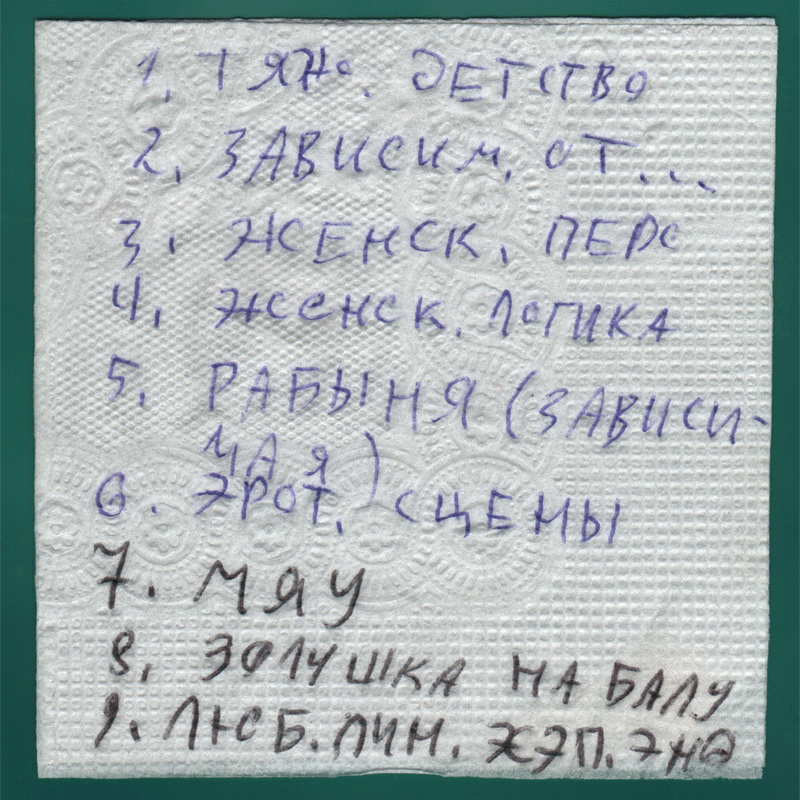 1. ТЯЖ. ДЕТСТВО
2. ЗАВИСИМ. ОТ...
3. ЖЕНСК. ПЕРС
4. ЖЕНСК. ЛОГИКА
5. РАБЫНЯ (ЗАВИСИ-
МАЯ)
6. ЭРОТ. СЦЕНЫ
7. МЯУ
8. ЗОЛУШКА НА БАЛУ
9. ЛЮБ. ЛИН. ХЭП. ЭНД